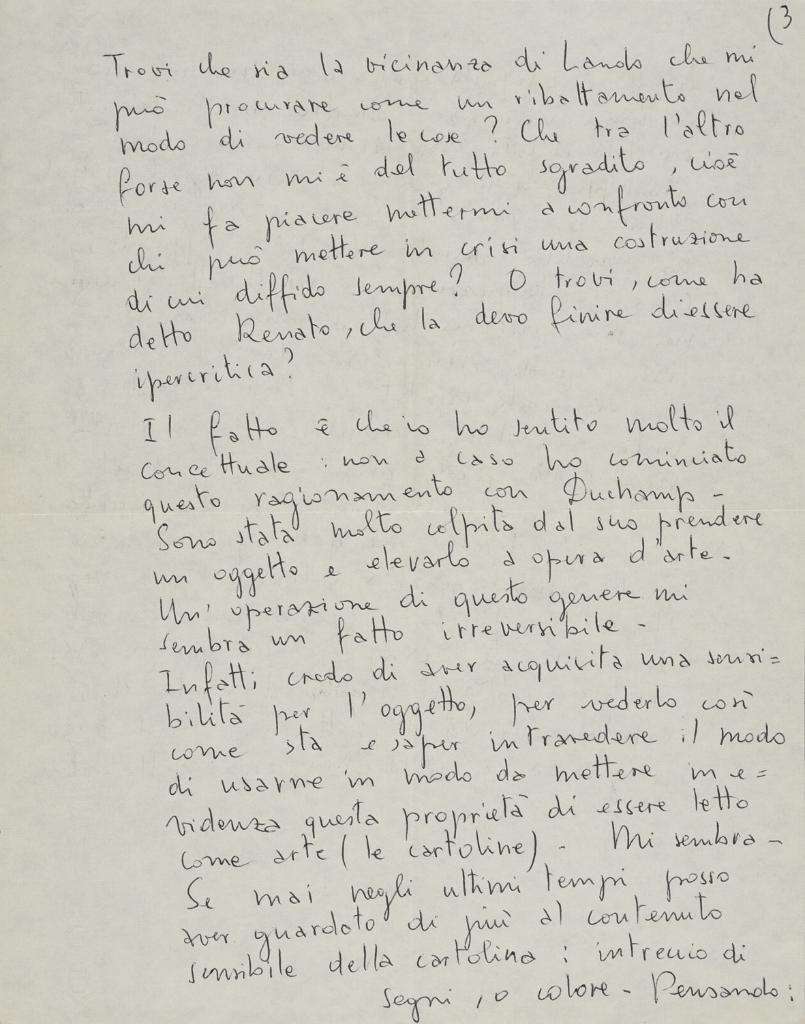 (3
Trovi che sia la vicinanza di Lando che mi
può procurare come un ribaltamento nel
modo di vedere le cose? Che tra l'altro
forse non mi è del tutto sgradito, cioè
mi fa piacere mettermi a confronto con
chi può mettere in crisi una costruzione
di cui diffido sempre? O trovi, come ha
detto Renato, che la devo finire di essere
ipercritica?
Il fatto è che io ho sentito molto il
concettuale: non a caso ho cominciato
questo ragionamento con Duchamp -
Sono stata molto colpita dal suo prendere
un oggetto e elevarlo a opera d'arte -
Un'operazione di questo genere mi
sembra un fatto irreversibile -
Infatti credo di aver acquisita una sensi=
bilità per l'oggetto, per vederlo così
come sta e saper intravedere il modo
di usarne in modo da mettere in e=
videnza questa proprietà di essere letto
come arte (le cartoline) - Mi sembra -
Se mai negli ultimi tempi posso
aver guardato di più al contenuto
sensibile della cartolina: intreccio di
segni, o colore - Pensando: